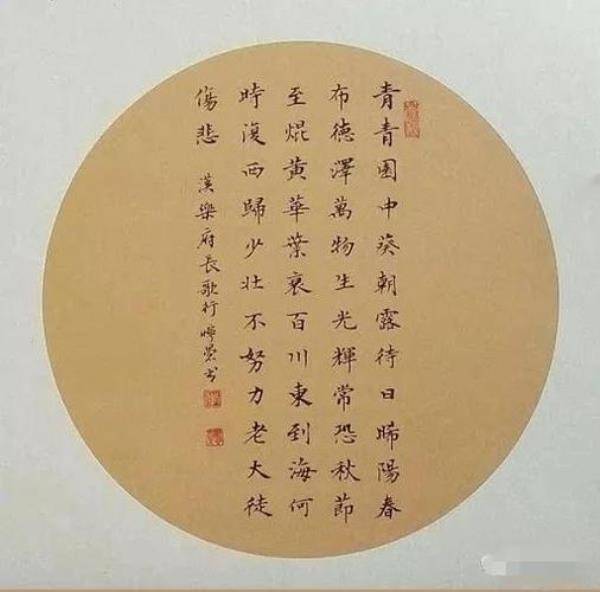 青青園中葵朝露待日晞陽春
布德澤萬物生光輝常恐秋節
至焜黃華葉衰百川東到海何
時復西歸少壯不努力老大徒
傷悲
漢樂府長歌行 書